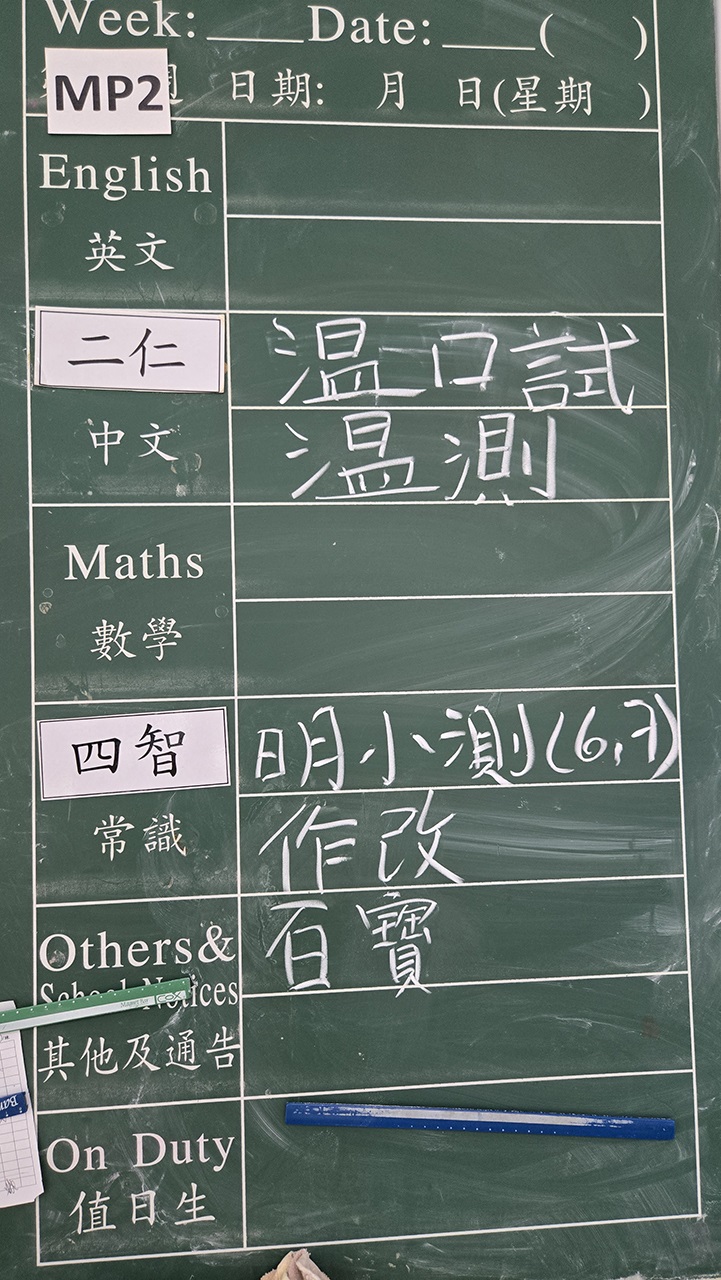 Week: ____ Date: ____ ( )
MP2 週 日期: 月 日(星期 )
English
英文
二仁
溫口試
中文
溫測
Maths
數學
四智
明小測(6,7)
常識
作改
百寶
Others&
School Notices
COX
其他及通告
On Duty
值日生